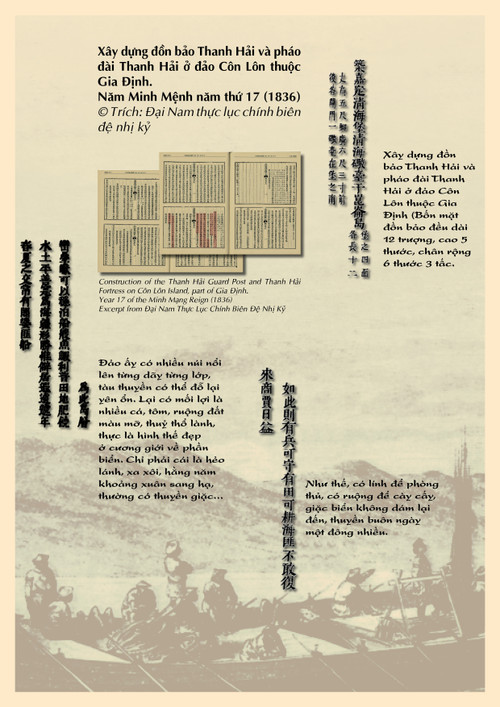 Xây dựng đồn bảo Thanh Hải và pháo
đài Thanh Hải ở đảo Côn Lôn thuộc
Gia Định.
Năm Minh Mệnh năm thứ 17 (1836)
© Trích: Đại Nam thực lục chính biên
đệ nhị kỷ
築嘉定清海堡清海礮臺于崑崙島
堡之四面
各長十二
後各開門一礮臺在堡之南
Xây dựng đồn
bảo Thanh Hải và
pháo đài Thanh
Hải ở đảo Côn
Lôn thuộc Gia
Định (Bốn mặt
đồn bảo đều dài
12 trượng, cao 5
thước, chân rộng
6 thước 3 tấc.
Construction of the Thanh Hải Guard Post and Thanh Hải
Fortress on Côn Lôn Island, part of Gia Định.
Year 17 of the Minh Mạng Reign (1836)
Excerpt from Đại Nam Thực Lục Chính Biên Đệ Nhị Kỷ
可以穩泊船艘魚蝦利普田地肥饒
水土平善
春夏之交常有匪船
Đảo ấy có nhiều núi nổi
lên từng dãy từng lớp,
tàu thuyền có thể đỗ lại
yên ổn. Lại có mối lợi là
nhiều cá, tôm, ruộng đất
màu mỡ, thuỷ thổ lành,
thực là hình thế đẹp
ở cương giới về phần
biển. Chỉ phải cái là hẻo
lánh, xa xôi, hằng năm
khoảng xuân sang hạ,
thường có thuyền giặc...
如此則有兵可守有田可耕海匪不敢復
來商賈日益
Như thế, có lính để phòng
thủ, có ruộng để cày cấy,
giặc biển không dám lại
đến, thuyền buôn ngày
một đông nhiều.